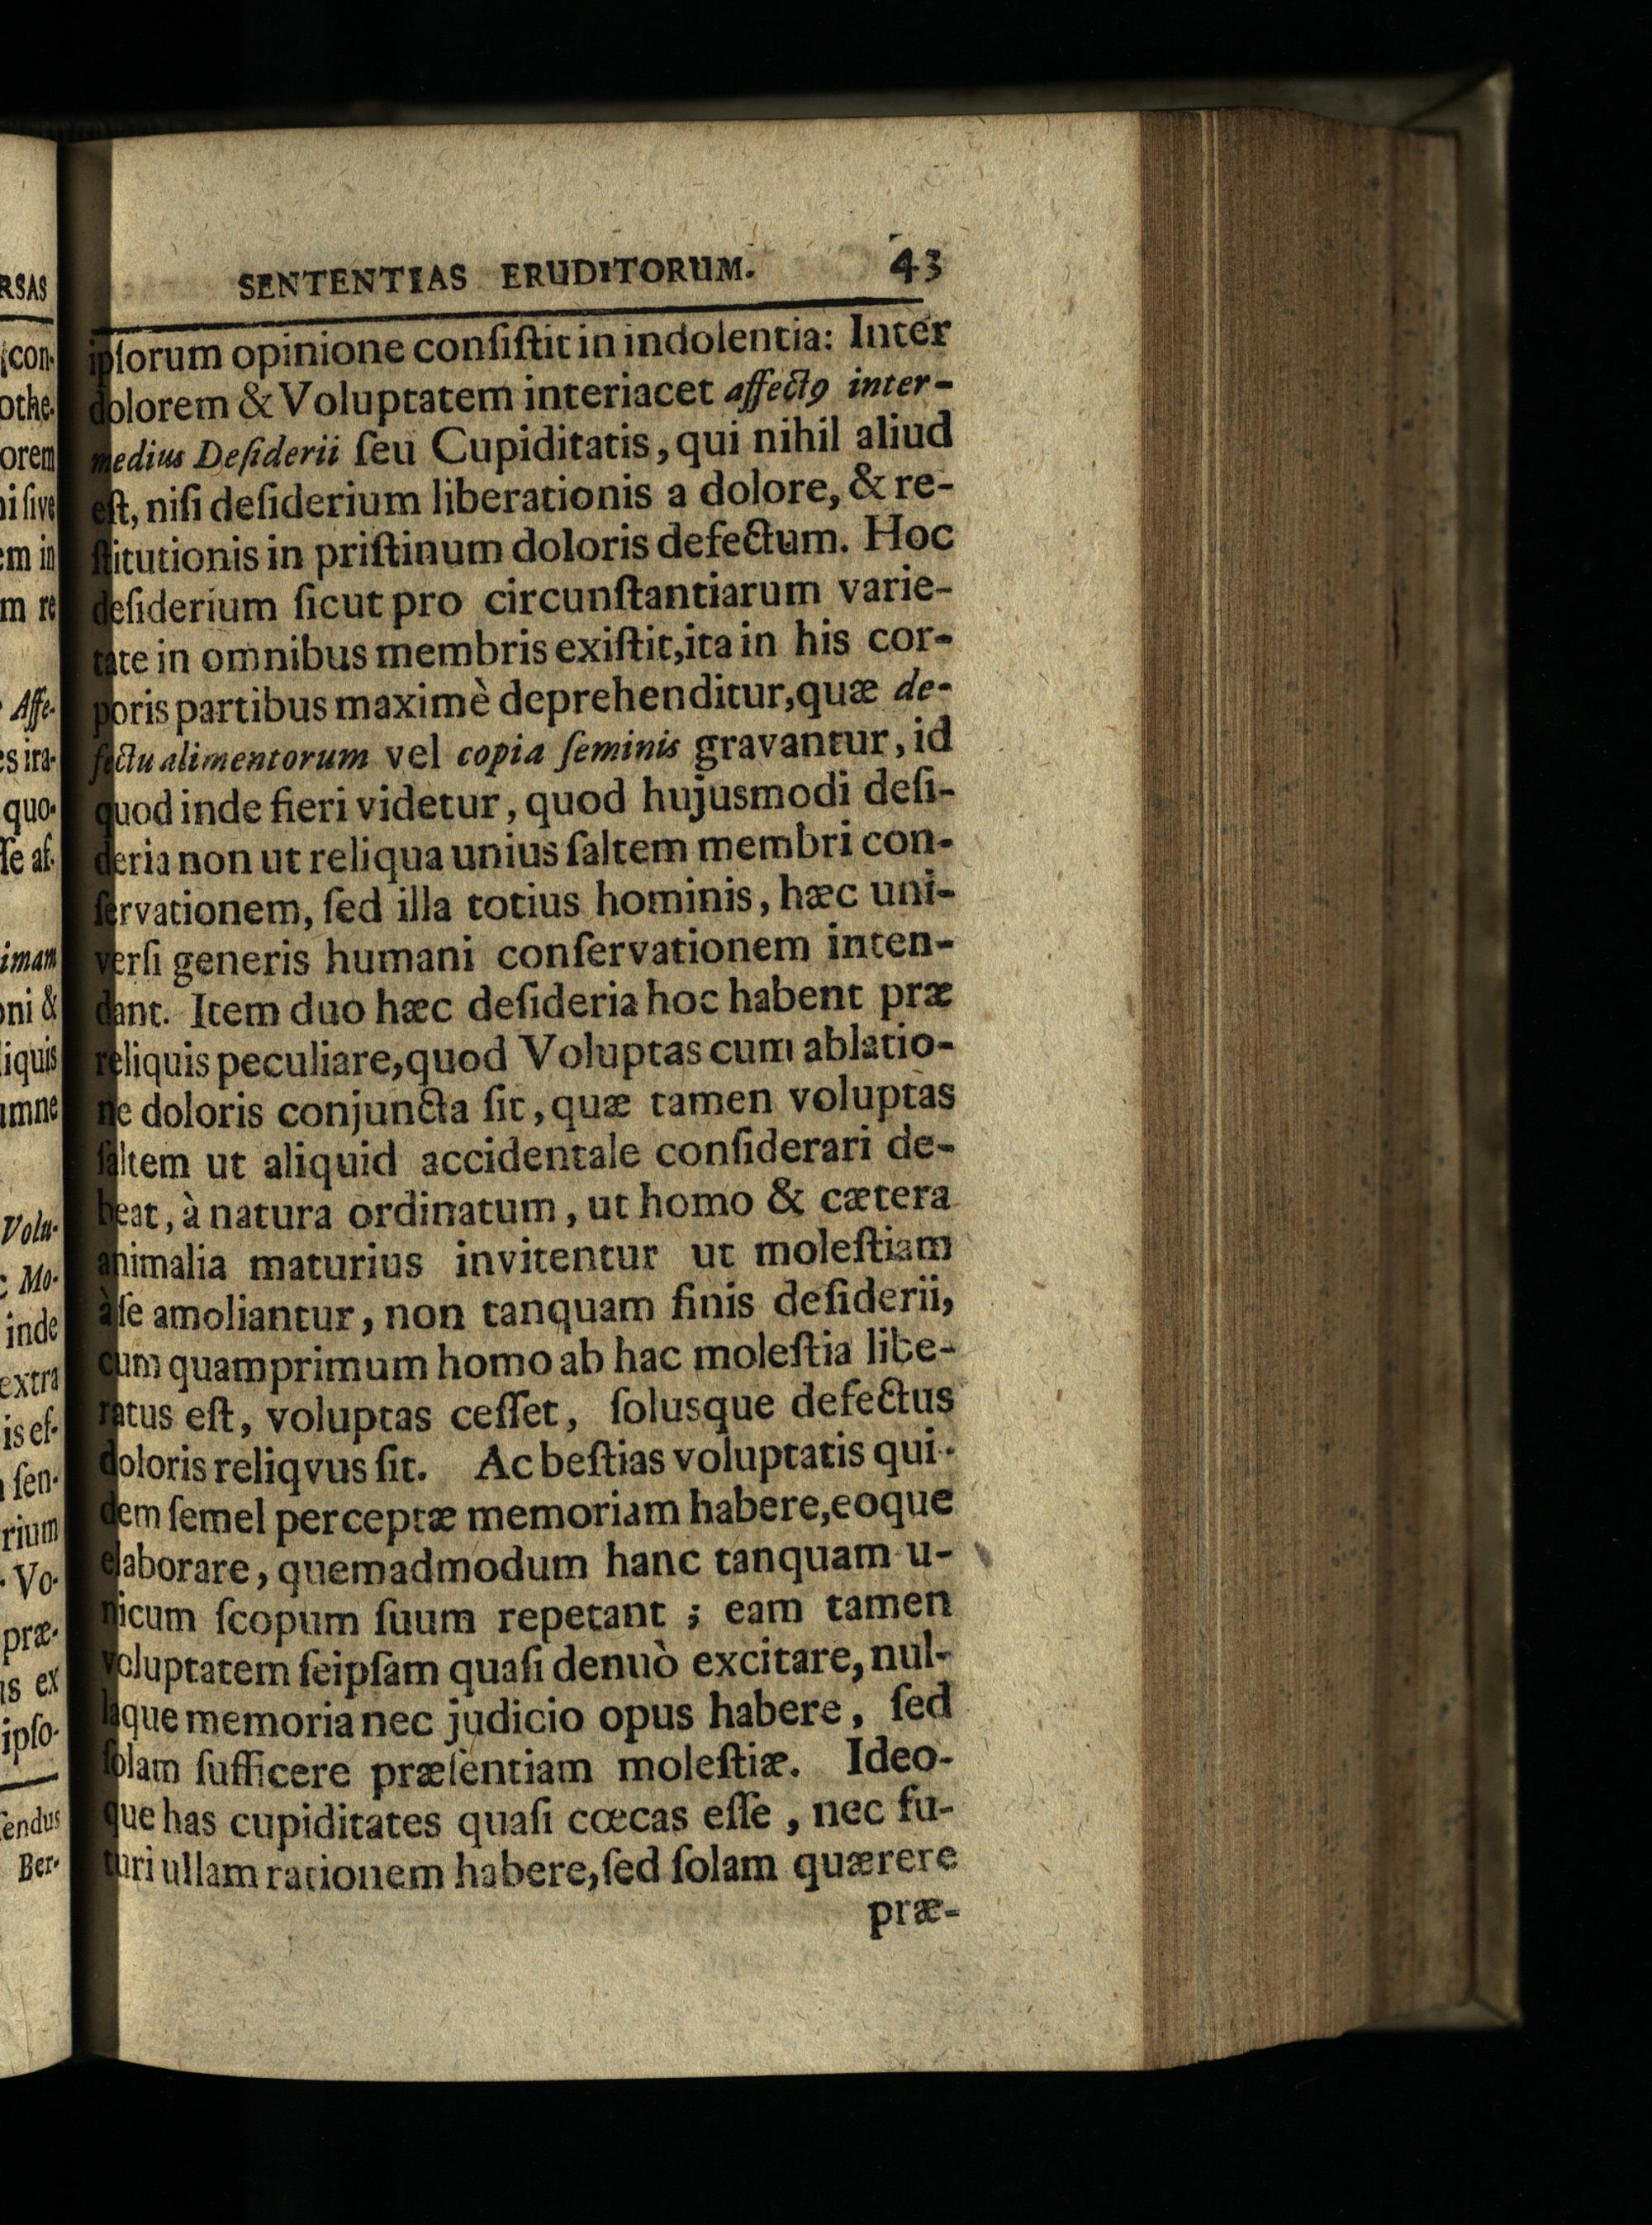 SENTENTIAS ERUDITORUM. 43
ipſorum opinione conſiſtit in indolentia: Inter
dolorem & Voluptatem interiacet affectꝰ inter-
medius Deſiderii ſeu Cupiditatis, qui nihil aliud
eſt, niſi deſiderium liberationis a dolore, & re-
ſtitutionis in priſtinum doloris defectum. Hoc
deſiderium ſicut pro circunſtantiarum varie-
tate in omnibus membris exiſtit, ita in his cor-
poris partibus maximè deprehenditur, quæ de-
fectu alimentorum vel copia ſeminis gravantur, id
quod inde fieri videtur, quod hujusmodi deſi-
deria non ut reliqua unius ſaltem membri con-
ſervationem, ſed illa totius hominis, hæc uni-
verſi generis humani conſervationem inten-
dant. Item duo hæc deſideria hoc habent præ
reliquis peculiare, quod Voluptas cum ablatio-
ne doloris conjuncta ſit, quæ tamen voluptas
ſaltem ut aliquid accidentale conſiderari de-
beat, à natura ordinatum, ut homo & cætera
animalia maturius invitentur ut moleſtiam
à ſe amoliantur, non tanquam finis deſiderii,
cum quamprimum homo ab hac moleſtia libe-
ratus eſt, voluptas ceſſet, ſolusque defectus
doloris reliqvus ſit. Ac beſtias voluptatis qui-
dem ſemel perceptæ memoriam habere, eoque
elaborare, quemadmodum hanc tanquam u-
nicum ſcopum ſuum repetant ; eam tamen
voluptatem ſeipſam quaſi denuò excitare, nul-
laque memoria nec judicio opus habere, ſed
ſolam ſufficere præſentiam moleſtiæ. Ideo-
que has cupiditates quaſi cœcas eſſe, nec fu-
turi ullam rationem habere, ſed ſolam quærere
præ-